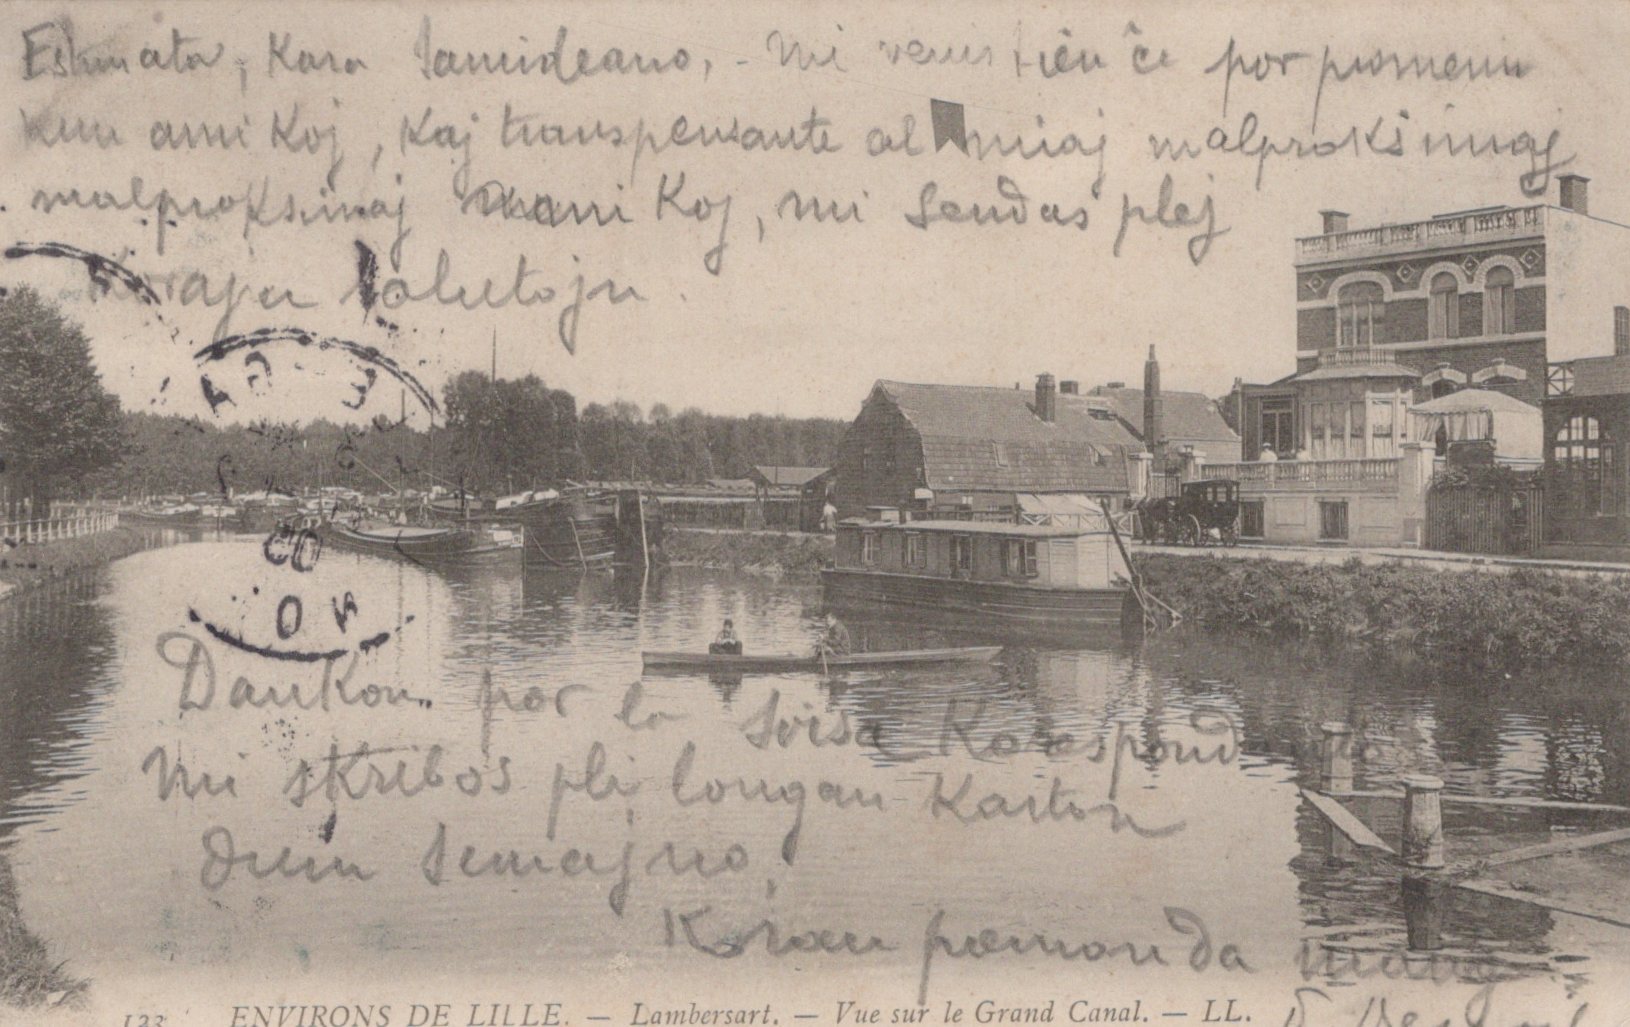 Estimata, Kara Samideano, - Mi venis tien ĉi por promeni
kun amikoj, kaj transpensante al miaj malproksimaj
malproksimaj amikoj, mi sendas plej
korajn salutojn.
Dankon por la
Mi skribos pli longan Karton
dum semajno,
Koran premon da manoj
123 ENVIRONS DE LILLE. — Lambersart. — Vue sur le Grand Canal. — LL.